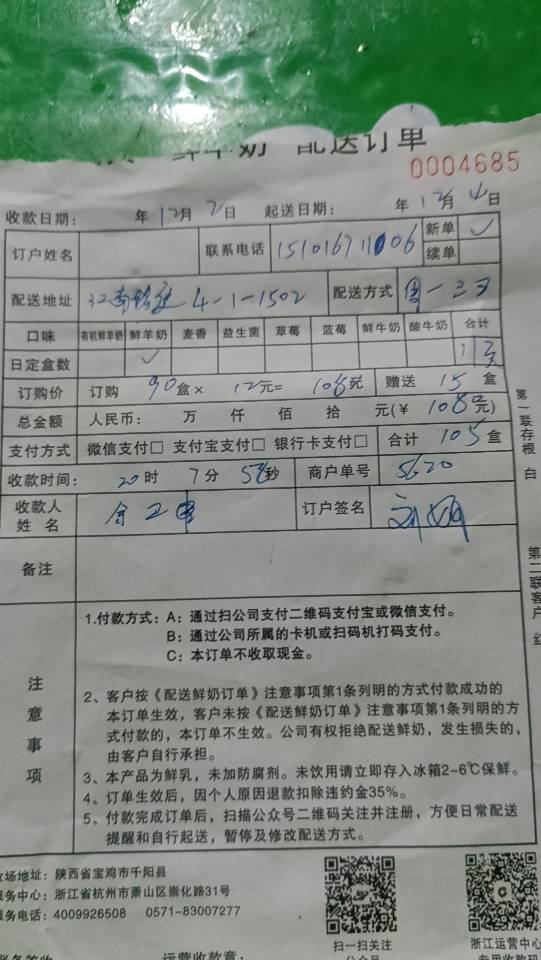 鲜羊奶 配送订单
0004685
收款日期： 年 12月 2日 起送日期： 年 12月 4日
订户姓名 联系电话 15101671106 新单 ✓
续单
配送地址 4-1-1502 配送方式 周一三
口味 有机鲜羊奶 鲜羊奶 麦香 益生菌 草莓 蓝莓 鲜牛奶 酸牛奶 合计
日定盒数 ✓
订购价 订购 90盒× 12元= 1080元 赠送 15 盒
总金额 人民币： 万 仟 佰 拾 元(￥ 1080元)
支付方式 微信支付□ 支付宝支付□ 银行卡支付□ 合计 105 盒
收款时间： 20时 7分 58秒 商户单号 5620
收款人姓名 订户签名 刘
备注
注意事项
1.付款方式：A：通过扫公司支付二维码支付宝或微信支付。
B：通过公司所属的卡机或扫码机打码支付。
C：本订单不收取现金。
2、客户按《配送鲜奶订单》注意事项第1条列明的方式付款成功的
本订单生效，客户未按《配送鲜奶订单》注意事项第1条列明的方
式付款的，本订单不生效。公司有权拒绝配送鲜奶，发生损失的，
由客户自行承担。
3、本产品为鲜乳，未加防腐剂。未饮用请立即存入冰箱2-6℃保鲜。
4、订单生效后，因个人原因退款扣除违约金35%。
5、付款完成订单后，扫描公众号二维码关注并注册，方便日常配送
提醒和自行起送，暂停及修改配送方式。
第一联存根 白
第二联客户 红
牧场地址：陕西省宝鸡市千阳县
服务中心：浙江省杭州市萧山区崇化路31号
服务电话：4009926508 0571-83007277
扫一扫关注
公众号
浙江运营中心
专用收款码
运营收款章：